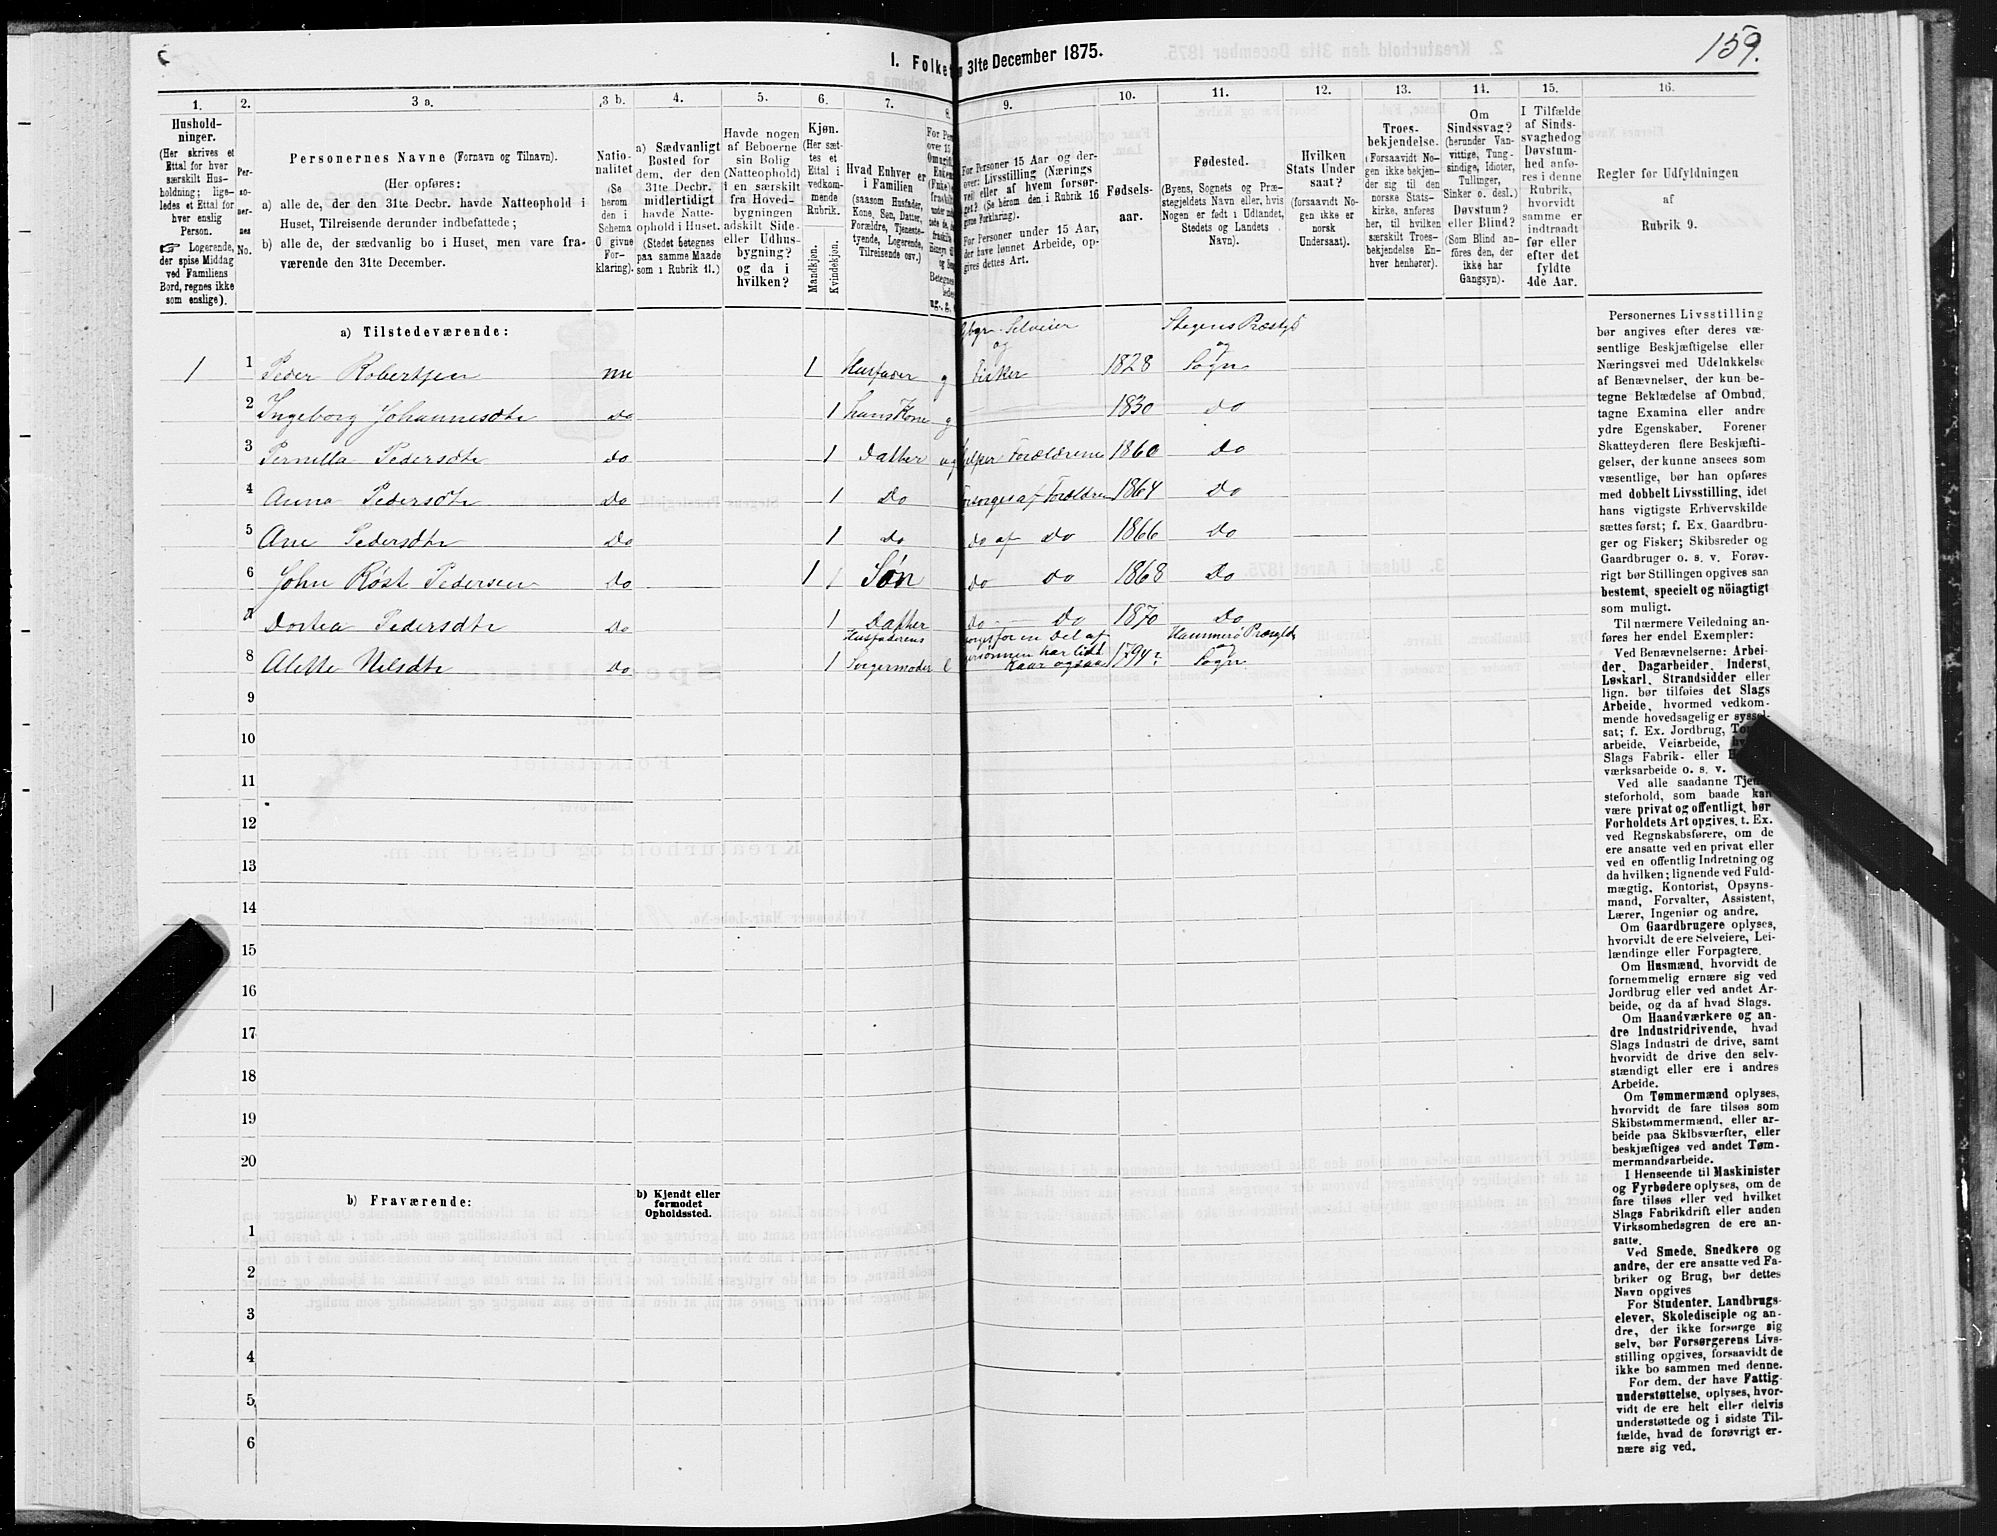 159.
1. Folket
n 31te December 1875.
1. 2. 3 a. 3 b. 4. 5. 6. 7. 8. 9. 10. 11. 12. 13. 14. 15. 16.
Hushold-
ninger.
(Her skrives et
Ettal for hver
særskilt Hus-
holdning; lige-
ledes et Ettal for
hver enslig
Person.
☞ Logerende,
der spise Middag
ved Familiens
Bord, regnes ikke
som enslige).
Per-
so-
ner-
nes
No.
Personernes Navne (Fornavn og Tilnavn).
(Her opføres:
a) alle de, der den 31te Decbr. havde Natteophold i
Huset, Tilreisende derunder indbefattede;
b) alle de, der sædvanlig bo i Huset, men vare fra-
værende den 31te December.
Natio-
nalitet
(Se
herom
den i
Schema
O givne
For-
klaring).
a) Sædvanligt
Bosted for
dem, der den
31te Decbr.
midlertidigt
havde Natte-
ophold i Huset.
(Stedet betegnes
paa samme Maade
som i Rubrik 11.)
Havde nogen
af Beboerne
sin Bolig
(Natteophold)
i en særskilt
fra Hoved-
bygningen
adskilt Side-
eller Udhus-
bygning?
og da i
hvilken?
Kjøn.
(Her sæt-
tes et
Ettal i
vedkom-
mende
Rubrik.
Mandkjøn.
Kvindekjøn.
Hvad Enhver er
i Familien
(saasom Husfader,
Kone, Søn, Datter,
Forældre, Tjeneste-
tyende, Logerende,
Tilreisende osv.)
For Personer 15 Aar og der-
over: Livsstilling (Nærings
vei) eller af hvem forsør-
get? (Se herom den i Rubrik 16
givne Forklaring).
For Personer under 15 Aar,
der have lønnet Arbeide, op-
gives dettes Art.
Fødsels-
aar.
Fødested.
(Byens, Sognets og Præ-
stegjeldets Navn eller, hvis
Nogen er født i Udlandet,
Stedets og Landets
Navn).
Hvilken
Stats Under
saat?
(forsaavidt No-
gen ikke er
norsk
Undersaat).
Troes-
bekjendelse.
(Forsaavidt No-
gen ikke bekjen-
der sig til den
norske Stats-
kirke, anføres
her, til hvilken
særskilt Troes-
bekjendelse En-
hver henhører).
Om
Sindssvag?
(herunder Van-
vittige, Tung-
sindige, Idioter,
Tullinger,
Sinker o. desl.)
Døvstum?
eller Blind?
(Som Blind an-
føres den, der
ikke har
Gangsyn).
I Tilfælde
af Sinds-
svaghed og
Døvstum-
hed anfø-
res i denne
Rubrik,
hvorvidt
samme er
indtraadt
før eller
efter det
fyldte
4de Aar.
Regler for Udfyldningen
af
Rubrik 9.
a) Tilstedeværende:
Selveier Stegens Præstgj
og og
1 1 Peder Robertsen nn 1 Husfader g Fisker 1828 Sogn
2 Ingeborg Johannesdtr do 1 hans Kone g 1830 do
3 Pernilla Pedersdtr do 1 Datter ug hjelper Forældrene 1860 do
4 Anna Pedersdtr do 1 do forsørges af Forældren 1864 do
5 Ane Pedersdtr do 1 do do af do 1866 do
6 John Røst Pedersen do 1 Søn do do 1868 do
7 Dortea Pedersdtr do 1 Datter do do 1870 do
Husfaderens for en Del af Hammerø Præstgj
8 Alette Nilsdtr do 1 Svigermoder e har lidt 1794 og
Kaar ogsaa Sogn
9
10
11
12
13
14
15
16
17
18
19
20
b) Fraværende:
b) Kjendt eller
formodet
Opholdssted.
1
2
3
4
5
6
Personernes Livsstilling
bør angives efter deres væ-
sentlige Beskjæftigelse eller
Næringsvei med Udelukkelse
af Benævnelser, der kun be-
tegne Beklædelse af Ombud,
tagne Examina eller andre
ydre Egenskaber. Forener
Skatteyderen flere Beskjæfti-
gelser, der kunne ansees som
væsentlige, bør han opføres
med dobbelt Livsstilling, idet
hans vigtigste Erhvervskilde
sættes først; f. Ex. Gaardbru-
ger og Fisker; Skibsreder og
Gaardbruger o. s. v. Forøv-
rigt bør Stillingen opgives saa
bestemt, specielt og nöiagtigt
som muligt.
Til nærmere Veiledning an-
føres her endel Exempler:
Ved Benævnelserne: Arbei-
der, Dagarbeider, Inderst,
Løskarl, Strandsidder eller
lign. bør tilføies det Slags
Arbeide, hvormed vedkom-
mende hovedsagelig er syssel-
sat; f. Ex. Jordbrug,
arbeide, Veiarbeide,
Slags Fabrik- eller
værksarbeide o. s. v.
Ved alle saadanne Tjene-
steforhold, som baade kan
være privat og offentligt, bør
Forholdets Art opgives, t. Ex.
ved Regnskabsførere, om de
ere ansatte ved en privat eller
ved en offentlig Indretning og
da hvilken; lignende ved Fuld-
mægtig, Kontorist, Opsyns-
mand, Forvalter, Assistent,
Lærer, Ingeniør og andre.
Om Gaardbrugere oplyses,
hvorvidt de ere Selveiere, Lei-
lændinge eller Forpagtere.
Om Husmænd, hvorvidt de
fornemmelig ernære sig ved
Jordbrug eller ved andet Ar-
beide, og da af hvad Slags.
Om Haandværkere og an-
dre Industridrivende, hvad
Slags Industri de drive, samt
hvorvidt de drive den selv-
stændigt eller ere i andres
Arbeide.
Om Tømmermænd oplyses,
hvorvidt de fare tilsøs som
Skibstømmermænd, eller ar-
beide paa Skibsværfter, eller
beskjæftiges ved andet Tøm-
mermandsarbeide.
I Henseende til Maskinister
og Fyrbødere oplyses, om de
fare tilsøs eller ved hvilket
Slags Fabrikdrift eller anden
Virksomhedsgren de ere an-
satte.
Ved Smede, Snedkere og
andre, der ere ansatte ved Fa-
briker og Brug, bør dettes
Navn opgives
For Studenter, Landbrugs-
elever, Skoledisciple og an-
dre, der ikke forsørge sig
selv, bør Forsørgerens Livs-
stilling opgives, forsaavidt de
ikke bo sammen med denne.
For dem, der have Fattig-
understøttelse, oplyses, hvor-
vidt de ere helt eller delvis
understøttede og i sidste Til-
fælde, hvad de forøvrigt er-
nære sig ved.